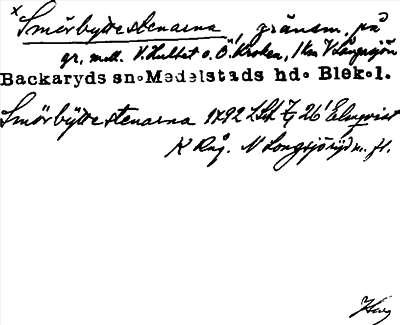 x Smörbyttestenarna, gränsm. på
gr. mell. V. Hultet o. Ö. Kroken, 1 km V Långasjön
Backaryds sn. Medelstads hd. Blek.l.
Smörbyttestenarna 1792 LSA 26 Elmqvist
K Råg. N Långsjöryd m. fl.